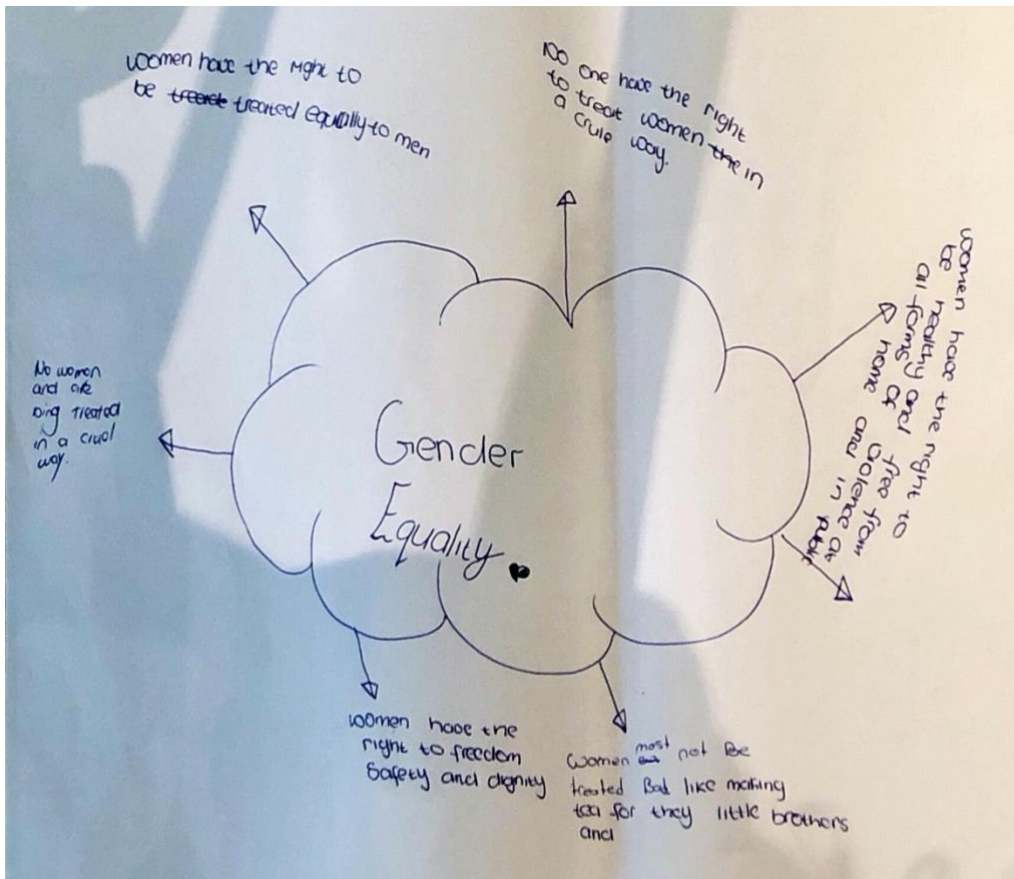 women have the right to
be treated equally to men
No one have the right
to treat women the in
a crule way.
women have the right to
be healthy and free from
all forms of violence at
home and in public
Gender
Equality
No women
and are
bing treated
in a crual
way.
women have the
right to freedom
safety and dignity
women most not Be
treated Bad like making
tea for they little brothers
and